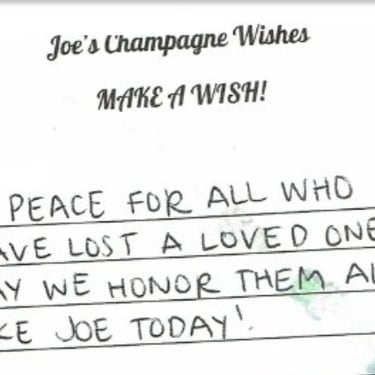 Joe's Champagne Wishes
MAKE A WISH!
PEACE FOR ALL WHO
AVE LOST A LOVED ONE
AY WE HONOR THEM AL
KE JOE TODAY!